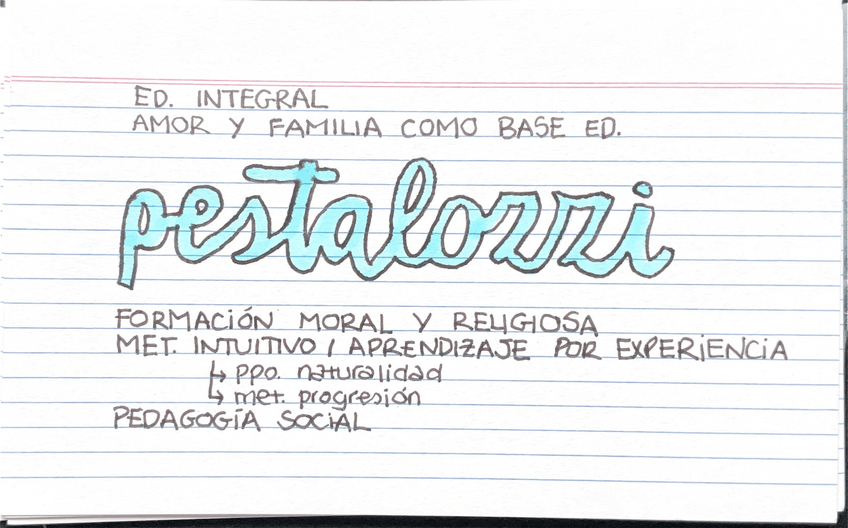 ED. INTEGRAL
AMOR Y FAMILIA COMO BASE ED.
pestalozzi
FORMACIÓN MORAL Y RELIGIOSA
MET. INTUITIVO / APRENDIZAJE POR EXPERIENCIA
↳ ppo. naturalidad
↳ met. progresión
PEDAGOGÍA SOCIAL